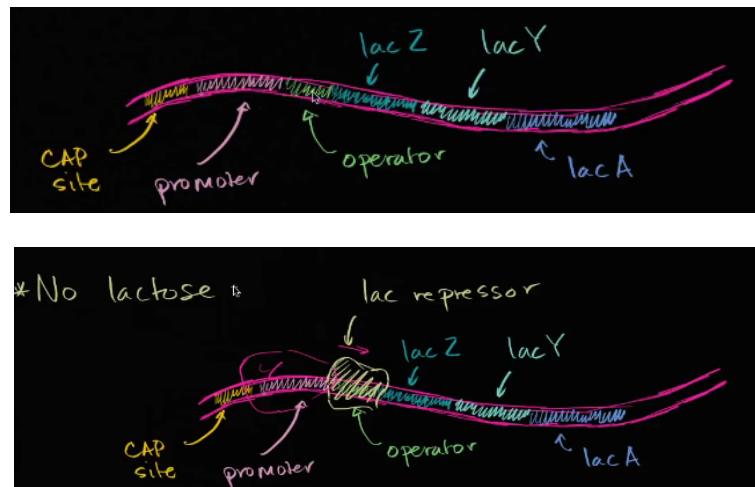 lac Z
lac Y
CAP
site
promoter
operator
lac A
*No lactose
lac repressor
lac Z
lac Y
CAP
site
promoter
operator
lac A